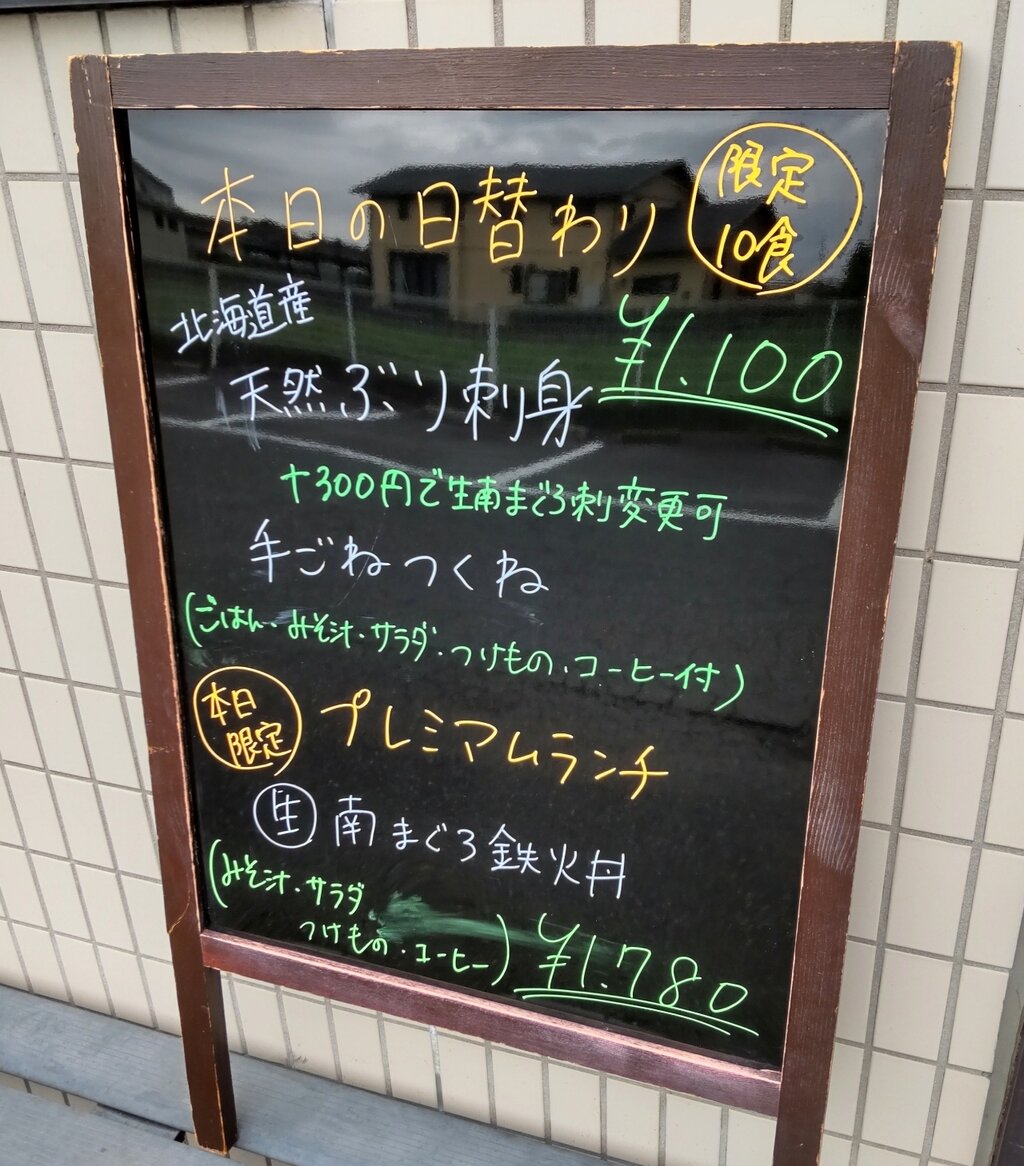 本日の日替わり
限定
10食
北海道産
¥1.100
天然ぶり刺身
+300円で生南まぐろ刺変更可
手ごねつくね
(ごはん・みそ汁・サラダ・つけもの・コーヒー付)
本日
限定
プレミアムランチ
生 南まぐろ鉄火丼
(みそ汁・サラダ
つけもの・コーヒー)
¥1.780